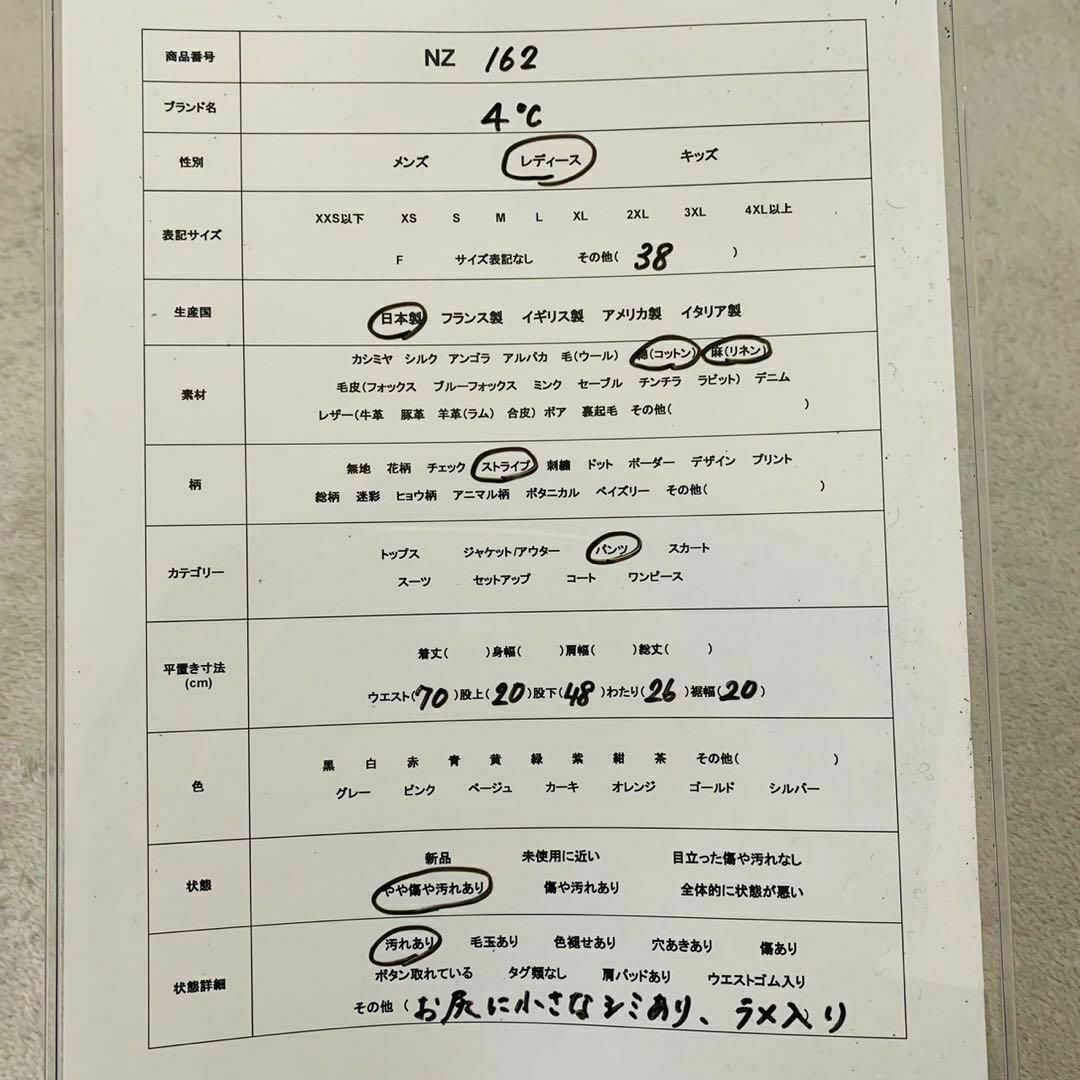 商品番号 NZ 162
ブランド名 4℃
性別 メンズ レディース キッズ
表記サイズ
XXS以下 XS S M L XL 2XL 3XL 4XL以上
F サイズ表記なし その他( 38 )
生産国 日本製 フランス製 イギリス製 アメリカ製 イタリア製
素材
カシミヤ シルク アンゴラ アルパカ 毛(ウール) 綿(コットン) 麻(リネン)
毛皮(フォックス ブルーフォックス ミンク セーブル チンチラ ラビット) デニム
レザー(牛革 豚革 羊革(ラム) 合皮) ボア 裏起毛 その他( )
柄
無地 花柄 チェック ストライプ 刺繍 ドット ボーダー デザイン プリント
総柄 迷彩 ヒョウ柄 アニマル柄 ボタニカル ペイズリー その他( )
カテゴリー
トップス ジャケット/アウター パンツ スカート
スーツ セットアップ コート ワンピース
平置き寸法
(cm)
着丈( )身幅( )肩幅( )総丈( )
ウエスト(70)股上(20)股下(48)わたり(26)裾幅(20)
色
黒 白 赤 青 黄 緑 紫 紺 茶 その他( )
グレー ピンク ベージュ カーキ オレンジ ゴールド シルバー
状態
新品 未使用に近い 目立った傷や汚れなし
やや傷や汚れあり 傷や汚れあり 全体的に状態が悪い
状態詳細
汚れあり 毛玉あり 色褪せあり 穴あきあり 傷あり
ボタン取れている タグ類なし 肩パッドあり ウエストゴム入り
その他 (お尻に小さなシミあり、ラメ入り